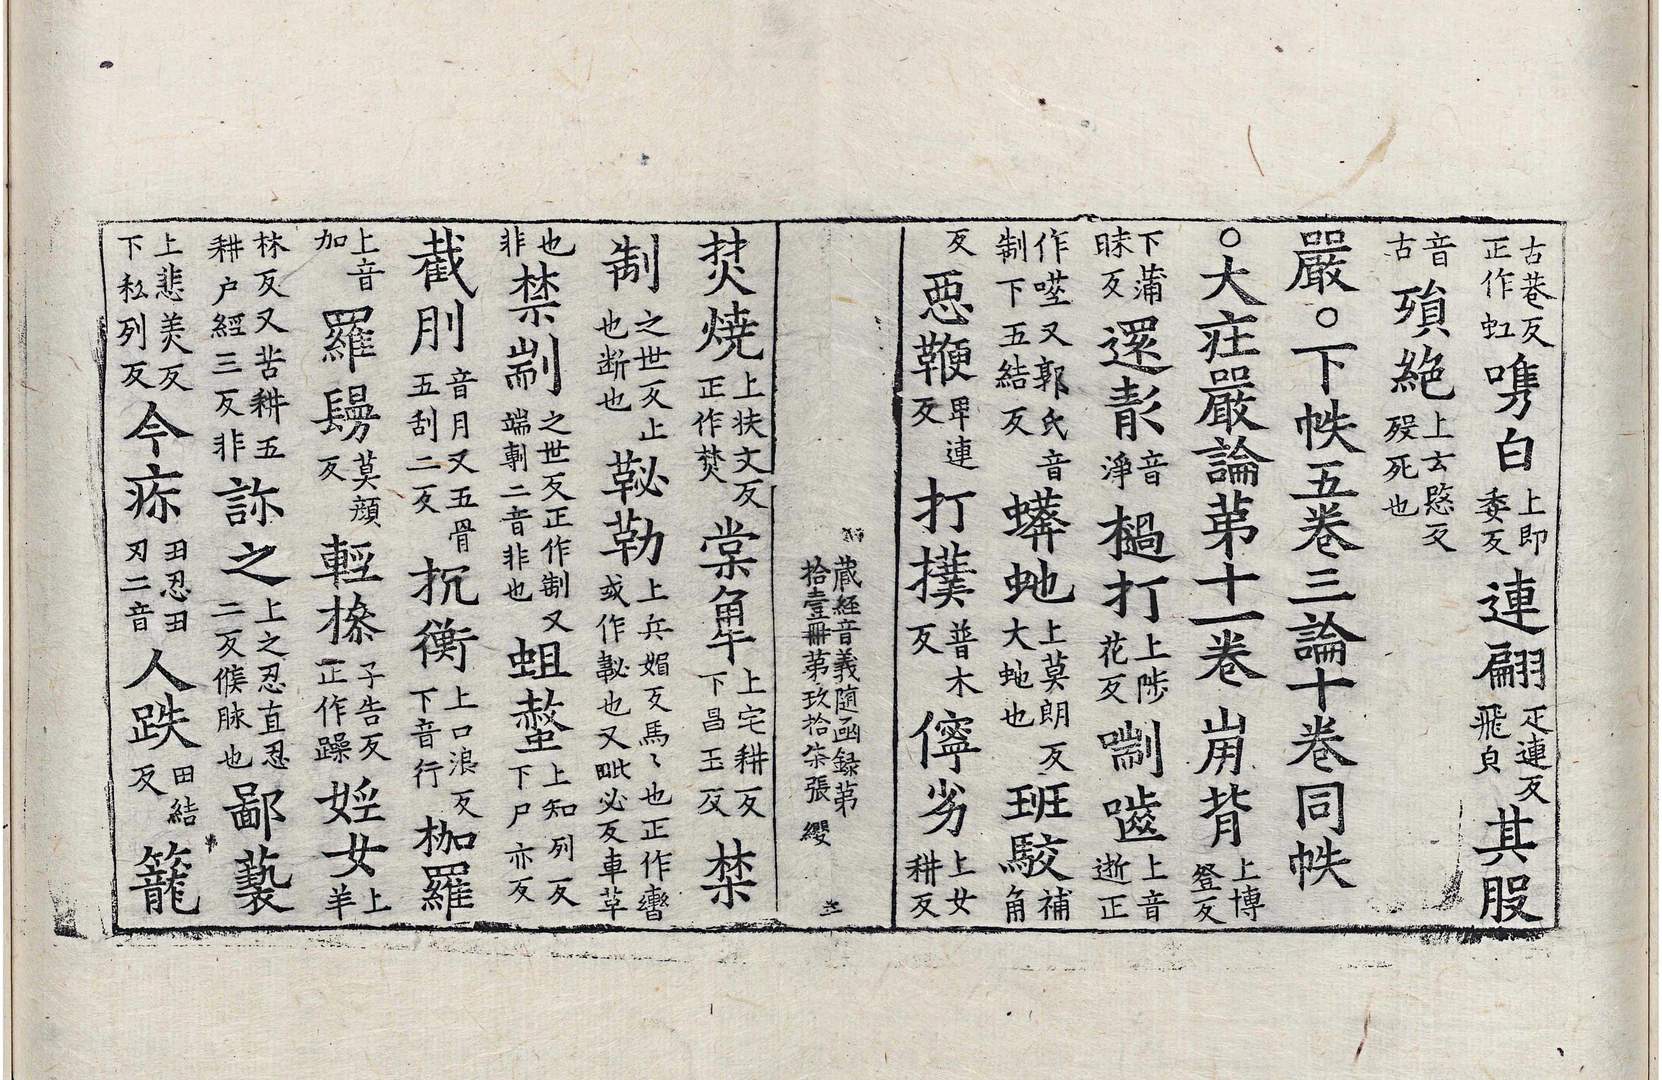 古巷反正作虹㗞白上即委反連翩疋連反飛皃其股
音古殞絶上云愍反歿死也
嚴○下帙五卷三論十卷同帙
○大荘嚴論第十一卷崩背上博登反
下蒲昧反還彰音淨檛打上陟花反㘅上音逝正
作噬又郭氏音制下五結反蟒虵上莫朗反大虵也班駮補角
反惡鞭卑連反打撲普木反儜劣上女耕反
藏経音義随函録第拾壹冊第玖拾柒張 纓
焚燒上扶文反正作焚棠犎上宅耕反下昌玉反禁
制之世反止也断也鞑勒上兵媚反馬〻也正作轡或作䩛也又毗必反車草
也非禁剬之世反正作制又端剸二音非也蛆螫上知列反下尸亦反
截刖音月又五骨五刮二反抗衡上口浪反下音行枷羅
上音加羅鬘莫顔反輕㯥子告反正作躁婬女上羊
林反又苦耕五耕户經三反非訹之上之忍直忍二反候脉也鄙褻
上悲美反下私列反今疹丑忍丑刃二音人跌田結反籠